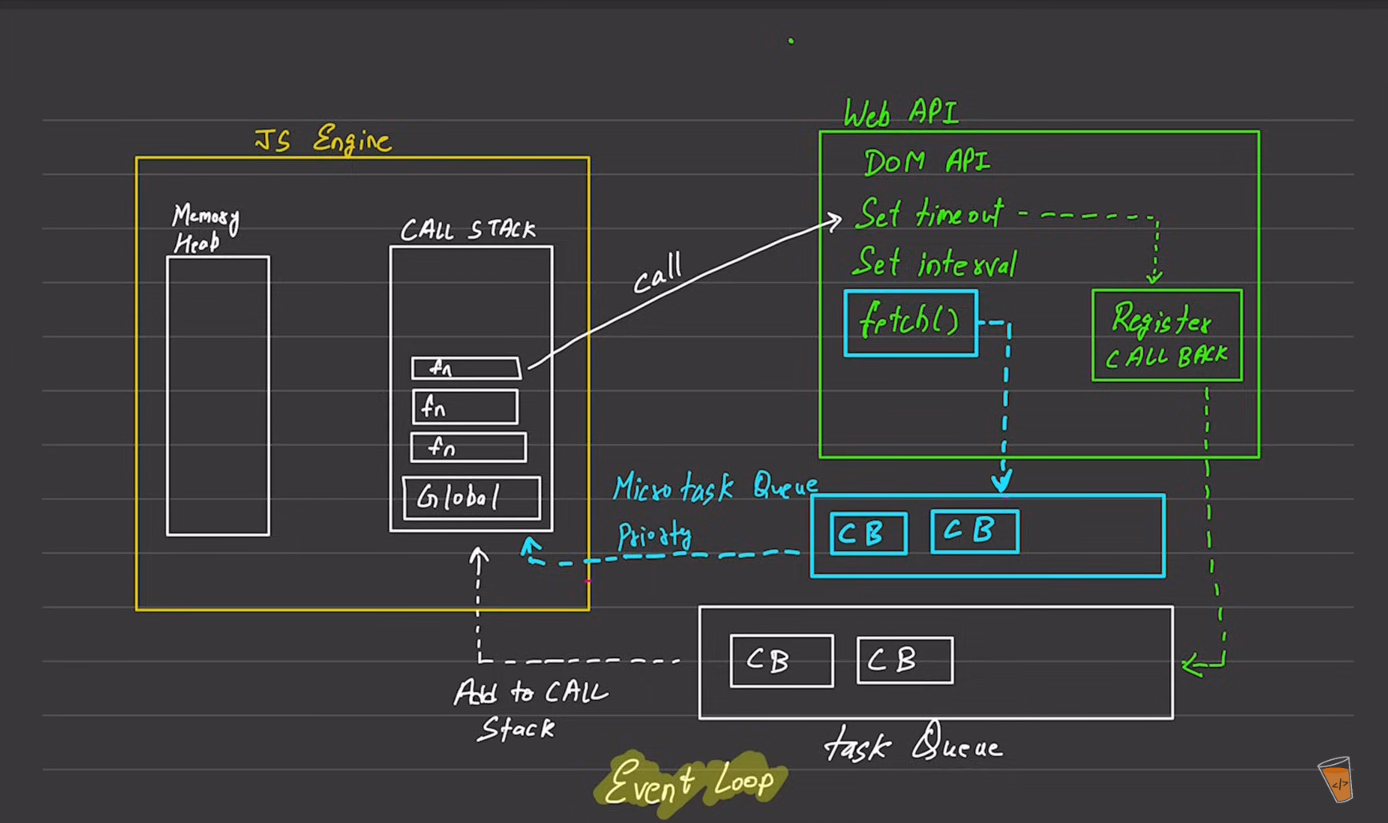 JS Engine
Memory
Heap
CALL STACK
fn
fn
fn
Global
call
Web API
DOM API
Set timeout
Set interval
fetch()
Register
CALL BACK
Microtask Queue
Priority
CB
CB
CB
CB
Add to CALL
Stack
task Queue
Event Loop
</>